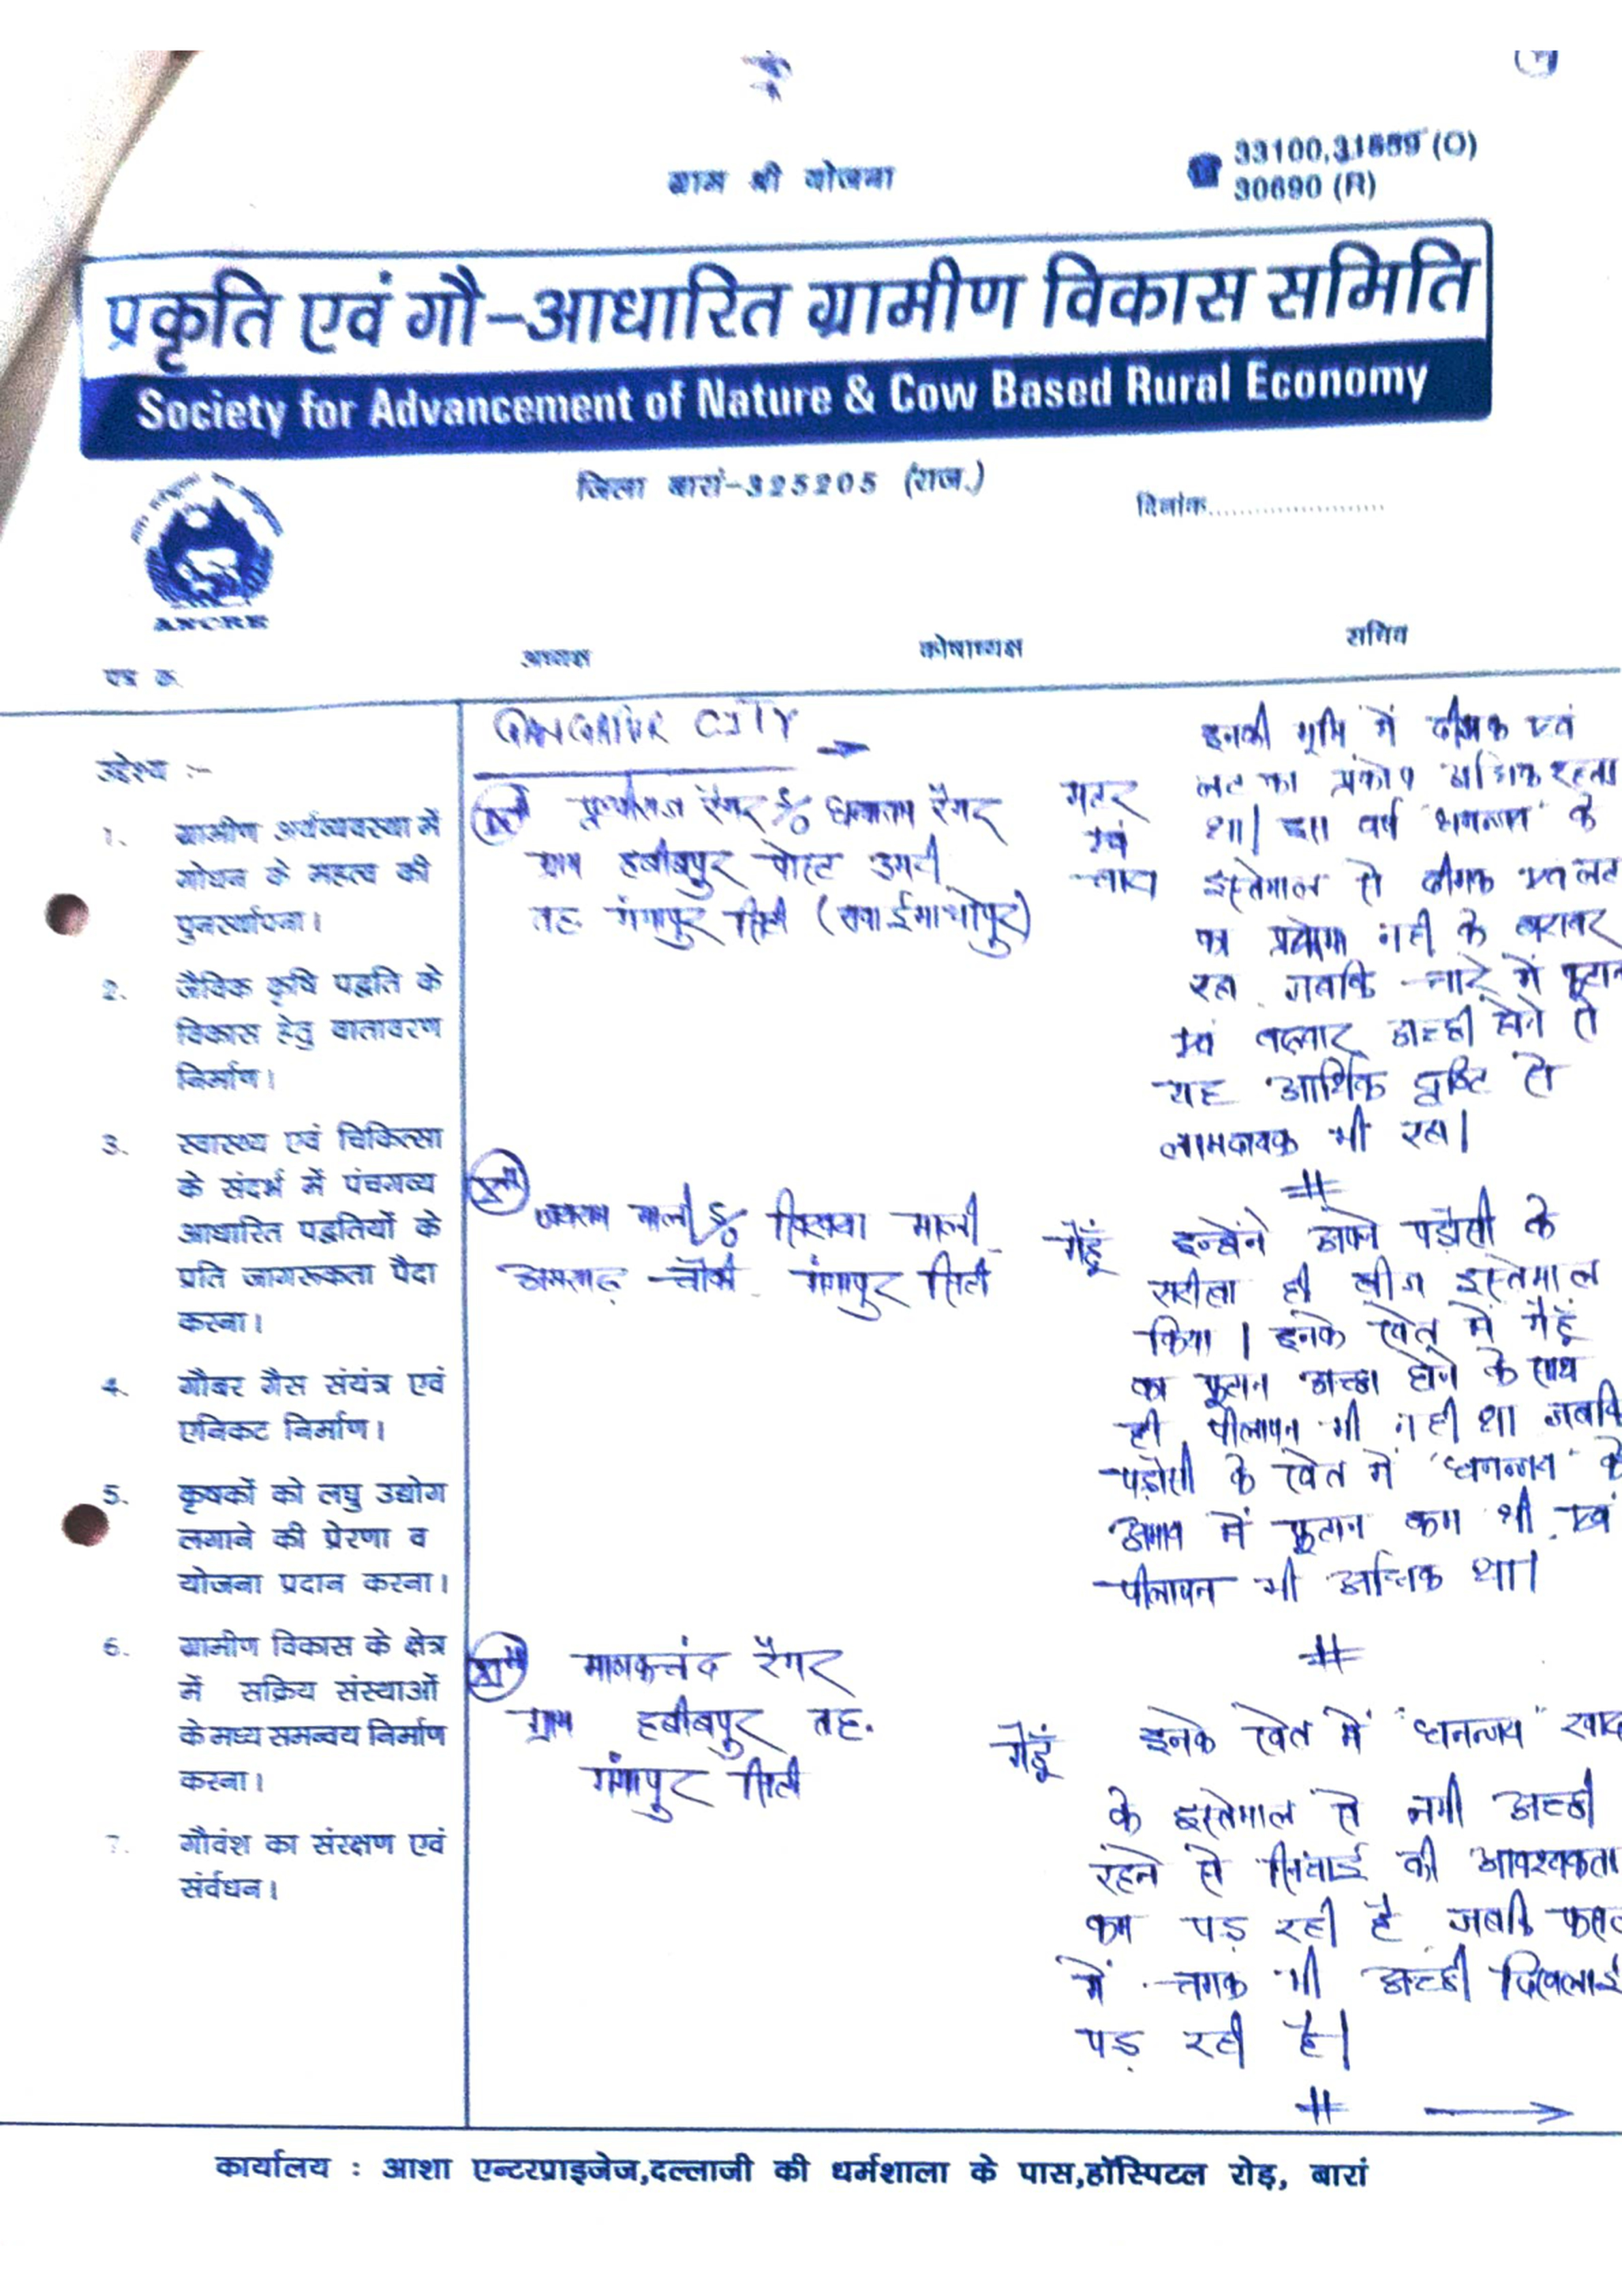 ग्राम श्री योजना
33100,31889 (O)
30690 (R)
प्रकृति एवं गौ-आधारित ग्रामीण विकास समिति
Society for Advancement of Nature & Cow Based Rural Economy
जिला बारां-325205 (राज.)
दिनांक......................
ANCRE
पत्र क्र.
अध्यक्ष
कोषाध्यक्ष
सचिव
उद्देश्य :-
1. ग्रामीण अर्थव्यवस्था में
गोधन के महत्व की
पुनर्स्थापना।
2. जैविक कृषि पद्वति के
विकास हेतु वातावरण
निर्माण।
3. स्वास्थ्य एवं चिकित्सा
के संदर्भ में पंचगव्य
आधारित पद्वतियों के
प्रति जागरूकता पैदा
करना।
4. गौबर गैस संयंत्र एवं
एनिकट निर्माण।
5. कृषकों को लघु उद्योग
लगाने की प्रेरणा व
योजना प्रदान करना।
6. ग्रामीण विकास के क्षेत्र
में सक्रिय संस्थाओं
के मध्य समन्वय निर्माण
करना।
7. गौवंश का संरक्षण एवं
संर्वधन।
GANGAPUR CITY
रैगर S/o रैगर
ग्राम हबीबपुर पोस्ट
तह. गंगापुर सिटी (सवाईमाधोपुर)
मटर
एवं
इनकी भूमि में दीमक एवं
लट का प्रकोप अधिक रहता
था। इस वर्ष "धनन्जय" के
इस्तेमाल से दीमक एवं लट
का नहीं के बराबर
रहा जबकि चारे में फूटान
एवं बढ़वार अच्छी होने से
यह आर्थिक दृष्टि से
लाभदायक भी रहा।
#
Xth
माली S/o माली
चौक गंगापुर सिटी
गेहूँ
इन्होंने अपने पड़ौसी के
सरीखा ही बीज इस्तेमाल
किया। इनके खेत में गेहूँ
का फूटान अच्छा होने के साथ
ही पीलापन भी नहीं था जबकि
पड़ोसी के खेत में "धनन्जय" के
अभाव में फूटान कम थी एवं
पीलापन भी अधिक था।
#
XIth
माणकचंद रैगर
ग्राम हबीबपुर तह.
गंगापुर सिटी
गेहूँ
इनके खेत में "धनन्जय" खाद
के इस्तेमाल से नमी अच्छी
रहने से सिंचाई की आवश्यकता
कम पड़ रही है जबकि फसल
में चमक भी अच्छी दिखलाई
पड़ रही है।
#
कार्यालय : आशा एन्टरप्राइजेज,दल्लाजी की धर्मशाला के पास,हॉस्पिटल रोड़, बारां